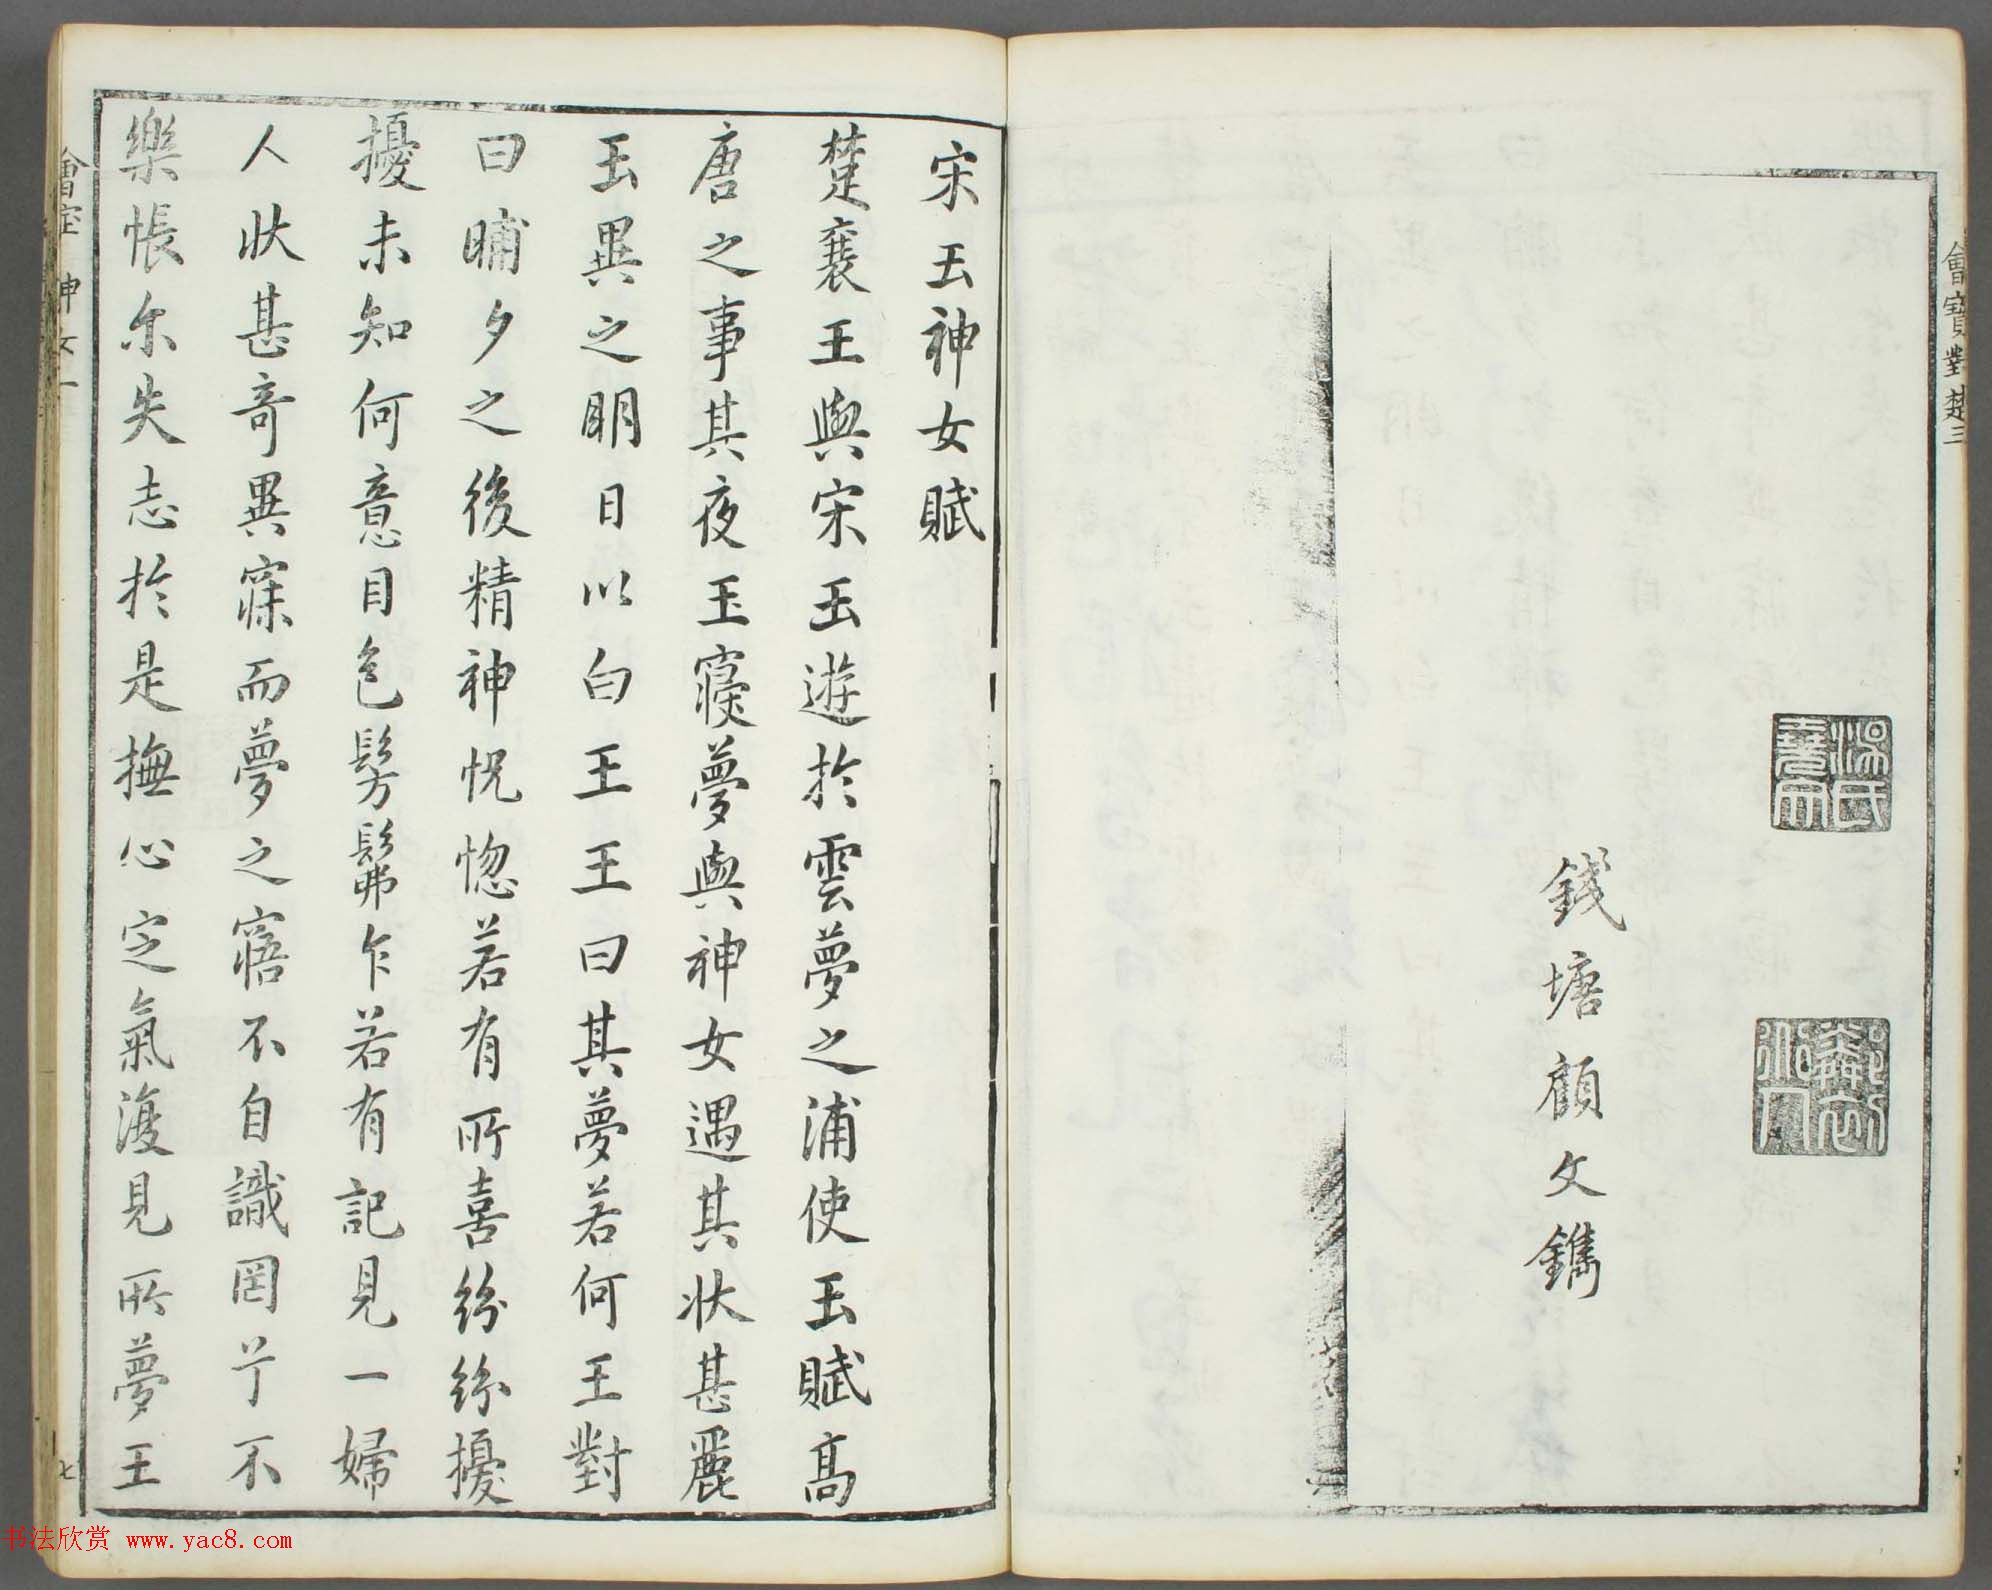 會寶對楚三
錢塘顧文鐫
宋玉神女賦
楚襄王與宋玉遊於雲夢之浦使玉賦高
唐之事其夜玉寢夢與神女遇其狀甚麗
玉異之明日以白王王曰其夢若何王對
曰晡夕之後精神怳惚若有所喜紛紛擾
擾未知何意目色髣髴乍若有記見一婦
人狀甚奇異寐而夢之寤不自識罔兮不
樂悵尔失志於是撫心定氣復見所夢王
神女一
七
书法欣赏 www.yac8.com